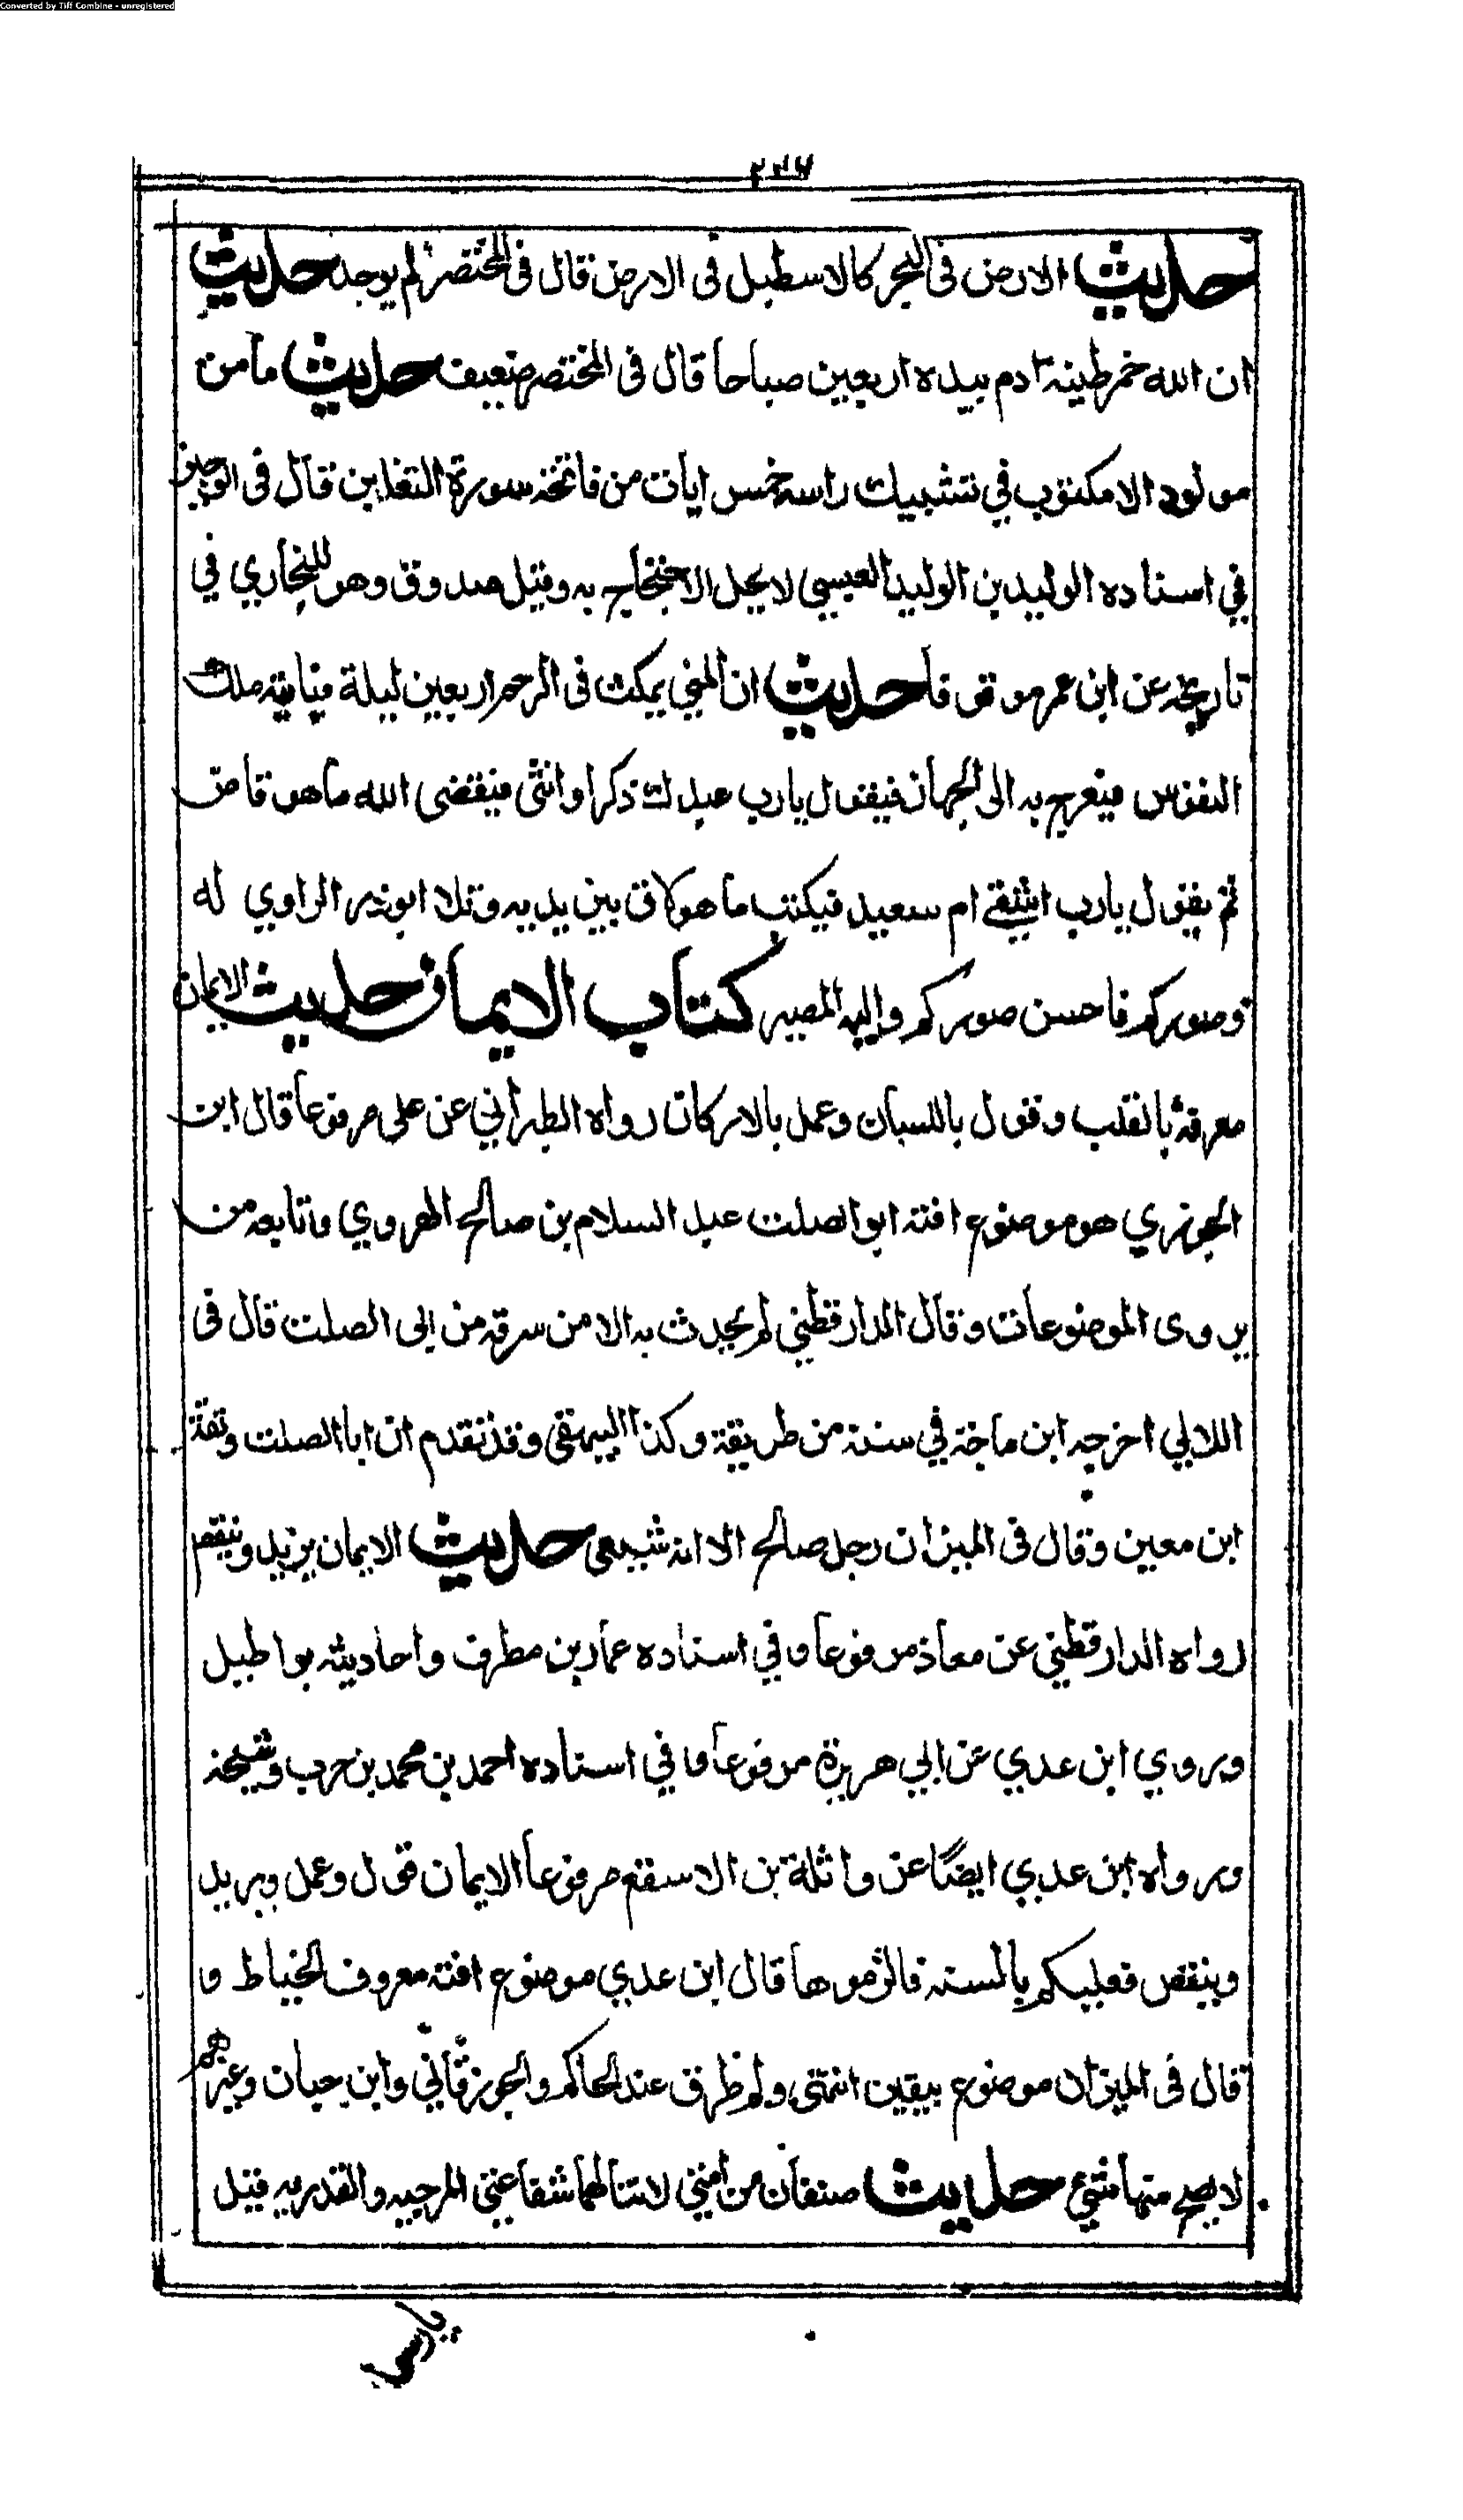 Converted by Tiff Combine - unregistered
حديث الارض فى البحر كالاسطبل فى الارض قال فى المختصر لم يوجد حديث
ان الله خمر طينة ادم بيده اربعين صباحا قال فى المختصر ضعيف حديث ما من
مولود الا مكتوب في تشبيك راسه خمس ايات من فاتحة سورة التغابن قال فى الوجيز
في اسناده الوليد بن الوليد العبسي لا يحل الاحتجاج به وقيل صدوق وهو للبخاري في
تاريخه عن ابن عمر موقوفا حديث ان المني يمكث فى الرحم اربعين ليلة فياتيه ملك
النفوس فيعرج به الى الجبار فيقول يارب عبدك ذكر او انثى فيقضى الله ما هو قاض
ثم يقول يارب اشقي ام سعيد فيكتب ما هو لاق بين يديه وتلا ابو ذر الراوي له
وصوركم فاحسن صوركم واليه المصير كتاب الايمان حديث الايمان
معرفة بالقلب وقول باللسان وعمل بالاركان رواه الطبراني عن على مرفوعا قال ابن
الجوزي هو موضوع افته ابو الصلت عبد السلام بن صالح الهروي وتابعه من
يروى الموضوعات وقال الدارقطني لم يحدث به الا من سرقه من ابى الصلت قال فى
اللالي اخرجه ابن ماجة في سننه من طريقة وكذا البيهقى وقد تقدم ان ابا الصلت وثقه
ابن معين وقال فى الميزان رجل صالح الا انه شيعى حديث الايمان يزيد وينقص
رواه الدارقطني عن معاذ مرفوعا وفي اسناده عمار بن مطرف واحاديثه بواطيل
وروي ابن عدي عن ابي هريرة مرفوعا وفي اسناده احمد بن محمد بن حرب وشيخه
ورواه ابن عدي ايضا عن واثلة بن الاسقع مرفوعا الايمان قول وعمل ويزيد
وينقص فعليكم بالسنه فالزموها قال ابن عدي موضوع افته معروف الخياط و
قال فى الميزان موضوع بيقين انتهى وله طرق عند الحاكم والجوزقاني وابن حبان وغيرهم
لا يصح منها شيئ حديث صنفان من امتي لا تنالهما شفاعتي المرجيه والقدريه قيل